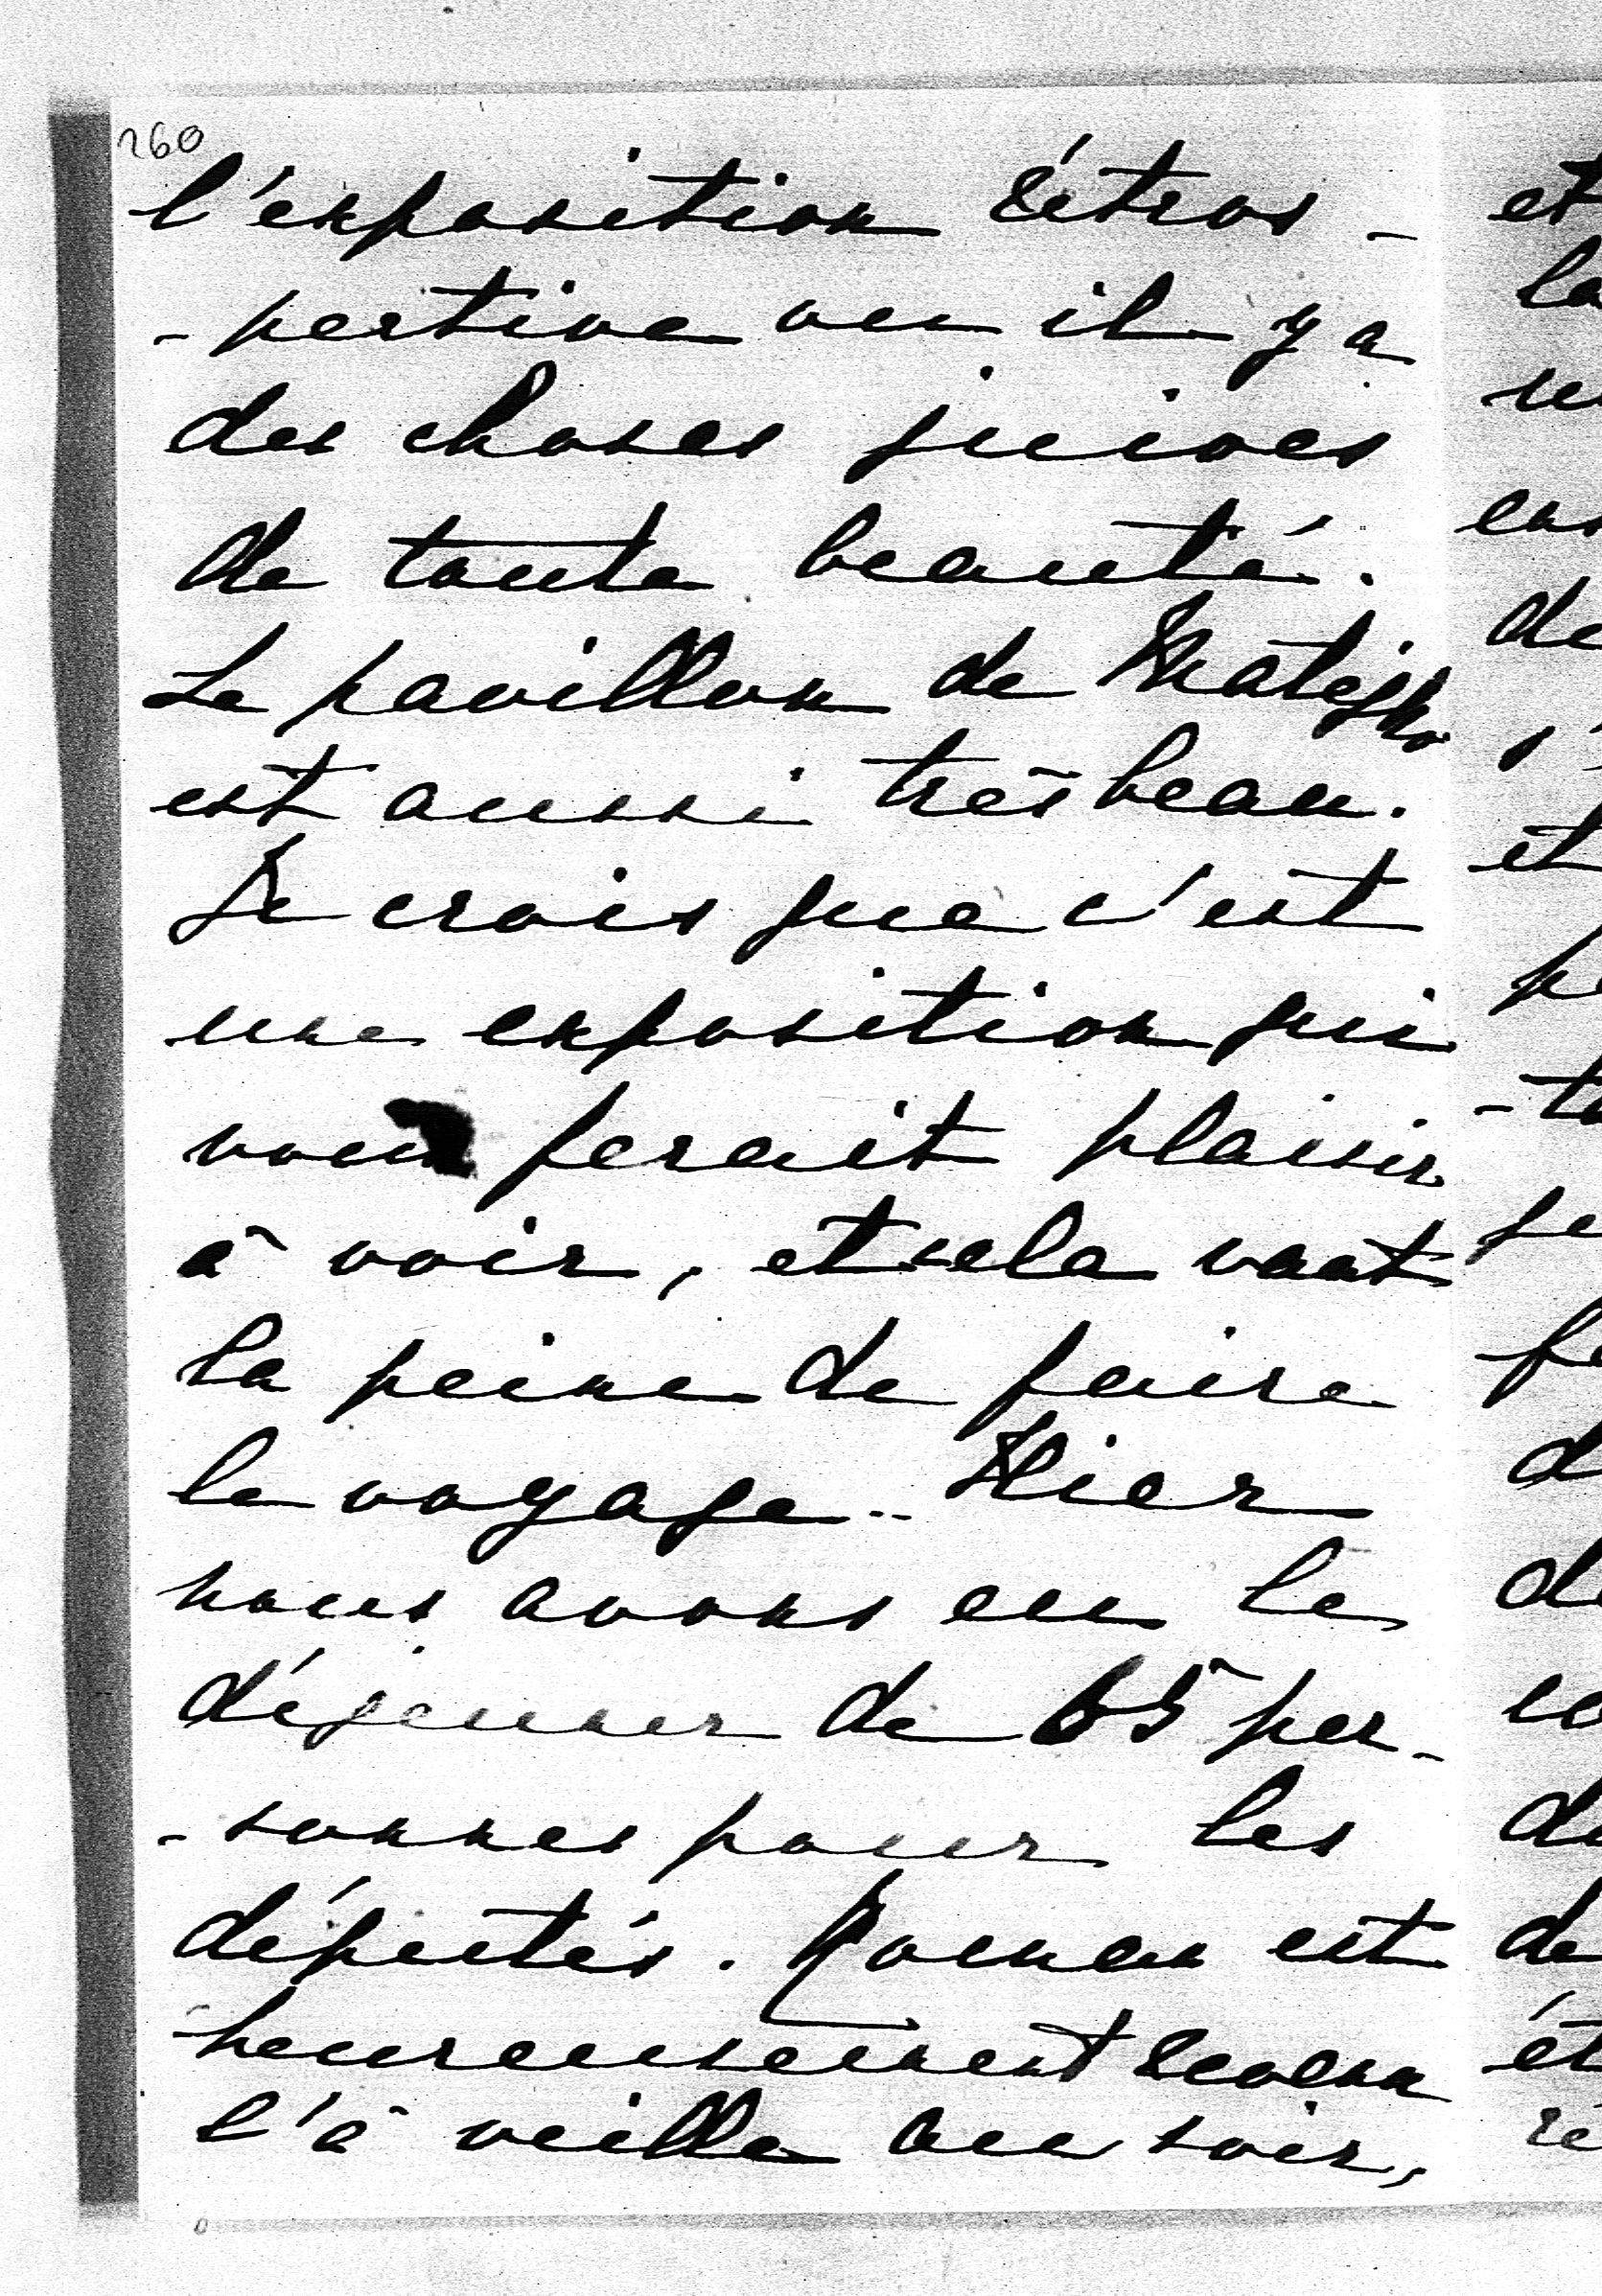 260
l'exposition rétros-
-pective ou il y a
des choses juives
de toute beauté.
Le pavillon de Matejko
est aussi très beau.
Je crois que c'est
une exposition qui
vous ferait plaisir
à voir, et cela vaut
la peine de faire
le voyage.. Hier
nous avons eu le
déjeuner de 65 per-
-sonnes pour les
députés. Roman est
heureusement revenu
l'à veille au soir,